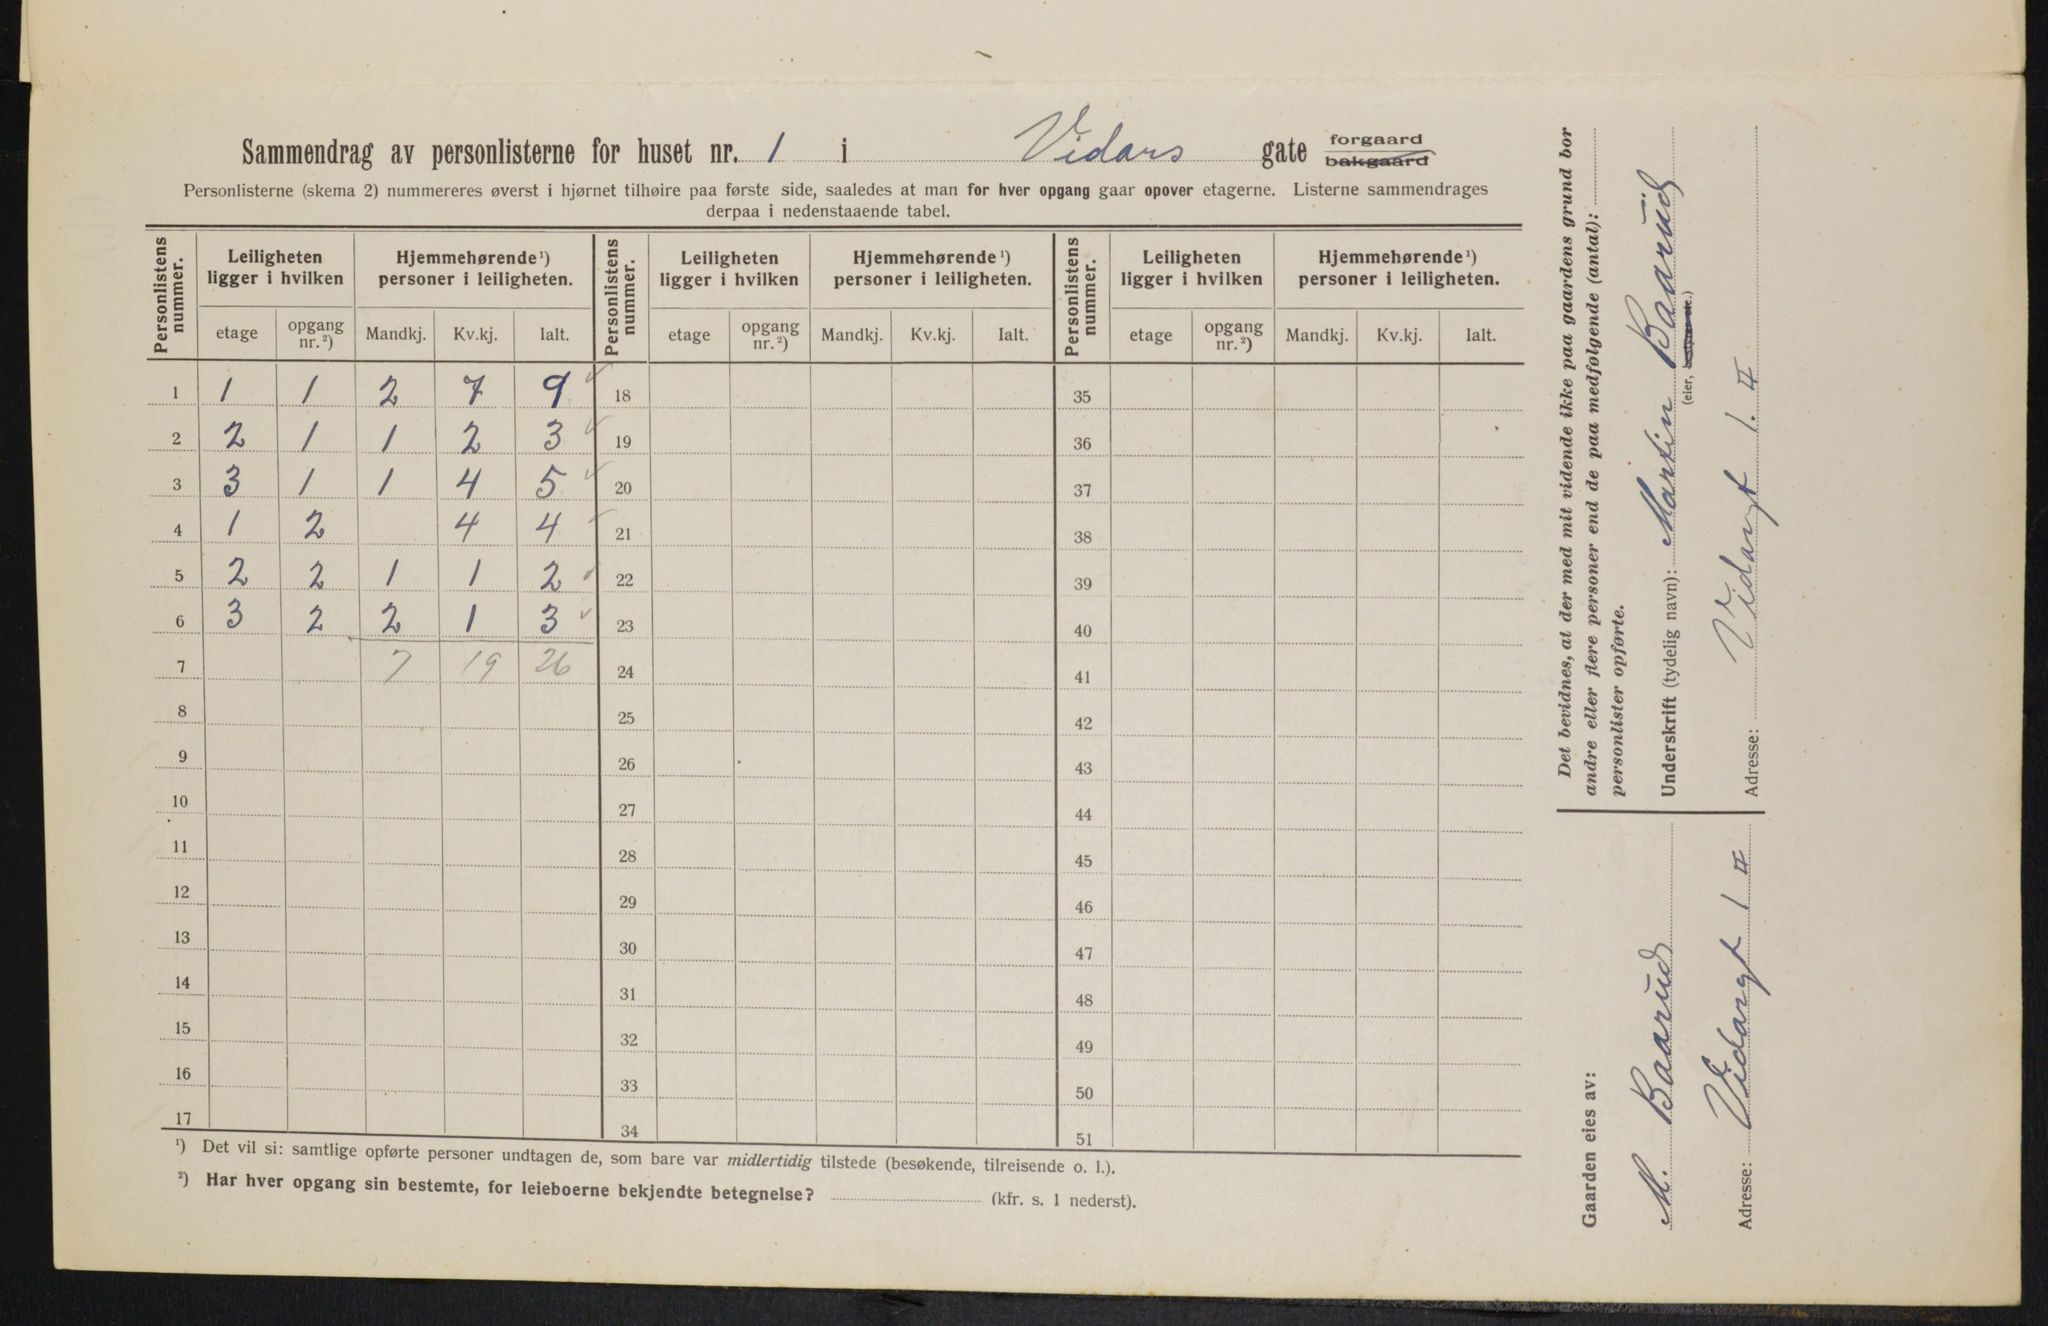 Sammendrag av personlisterne for huset nr. 1 i Vidars gate forgaard bakgaard
Personlisterne (skema 2) nummereres øverst i hjørnet tilhøire paa første side, saaledes at man for hver opgang gaar opover etagerne. Listerne sammendrages
derpaa i nedenstaaende tabel.
Personlistens nummer. Leiligheten ligger i hvilken Hjemmehørende ¹) personer i leiligheten. Personlistens nummer. Leiligheten ligger i hvilken Hjemmehørende ¹) personer i leiligheten. Personlistens nummer. Leiligheten ligger i hvilken Hjemmehørende ¹) personer i leiligheten.
etage opgang nr. ²) Mandkj. Kv.kj. Ialt. etage opgang nr. ²) Mandkj. Kv.kj. Ialt. etage opgang nr. ²) Mandkj. Kv.kj. Ialt.
1 1 1 2 7 9 18 35
2 2 1 1 2 3 19 36
3 3 1 1 4 5 20 37
4 1 2 4 4 21 38
5 2 2 1 1 2 22 39
6 3 2 2 1 3 23 40
7 7 19 26 24 41
8 25 42
9 26 43
10 27 44
11 28 45
12 29 46
13 30 47
14 31 48
15 32 49
16 33 50
17 34 51
¹) Det vil si: samtlige opførte personer undtagen de, som bare var midlertidig tilstede (besøkende, tilreisende o. l.).
²) Har hver opgang sin bestemte, for leieboerne bekjendte betegnelse? (kfr. s. 1 nederst).
Det bevidnes, at der med mit vidende ikke paa gaardens grund bor
andre eller flere personer end de paa medfølgende (antal):
personlister opførte.
Underskrift (tydelig navn): Martin Baarud
(eier,
Adresse: Vidarsgt 1. II
Gaarden eies av:
M. Baarud
Adresse: Vidarsgt 1 II